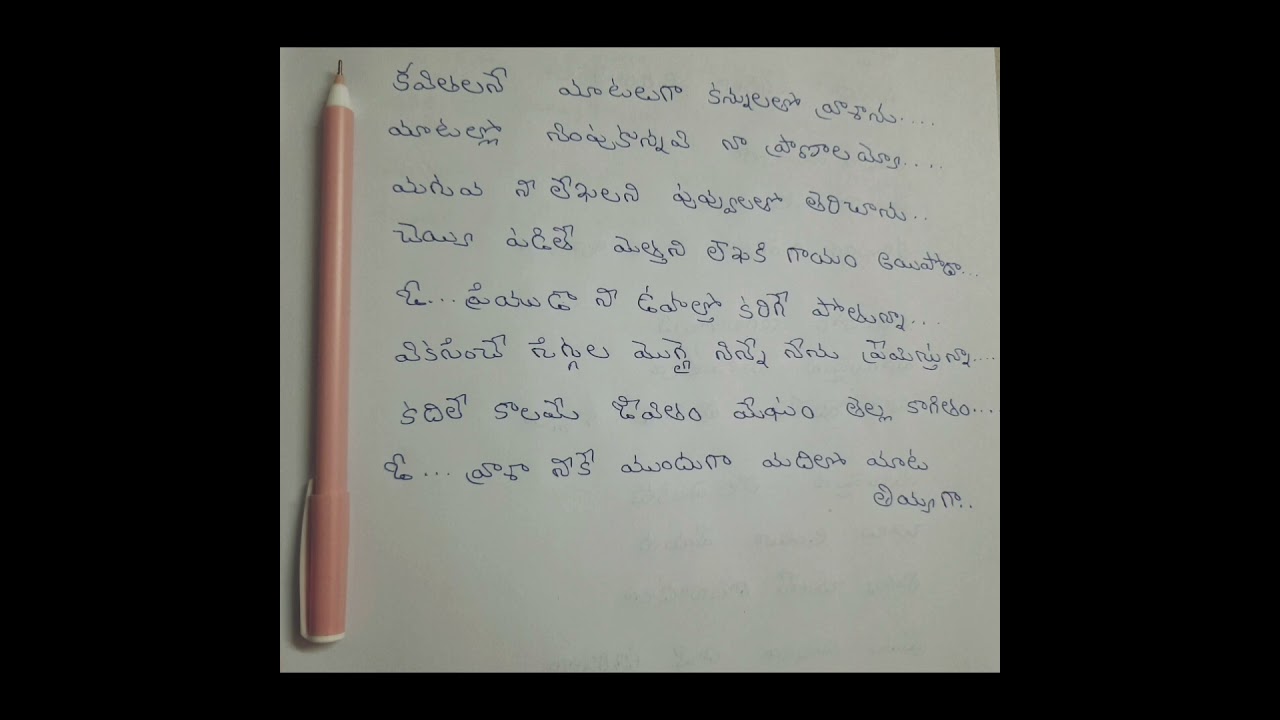 కవితలనే మాటలుగా కన్నులతో వ్రాశాను....
మాటల్లో నింపుకున్నవి నా ప్రాణాలమ్మో....
మగువ నీ లేఖలని పువ్వులతో తెరిచాను..
చెయ్యి పడితే మెత్తని లేఖకి గాయం అయిపోదా...
ఓ... ప్రియుడా నీ ఊహల్లో కరిగే పోతున్నా...
వికసించే సిగ్గుల మొగ్గై నిన్నే నేను ప్రేమిస్తున్నా....
కదిలే కాలమే జీవితం మేఘం తెల్ల కాగితం....
ఓ... వ్రాశా నీకే ముందుగా మదిలో మాట
తియ్యగా..